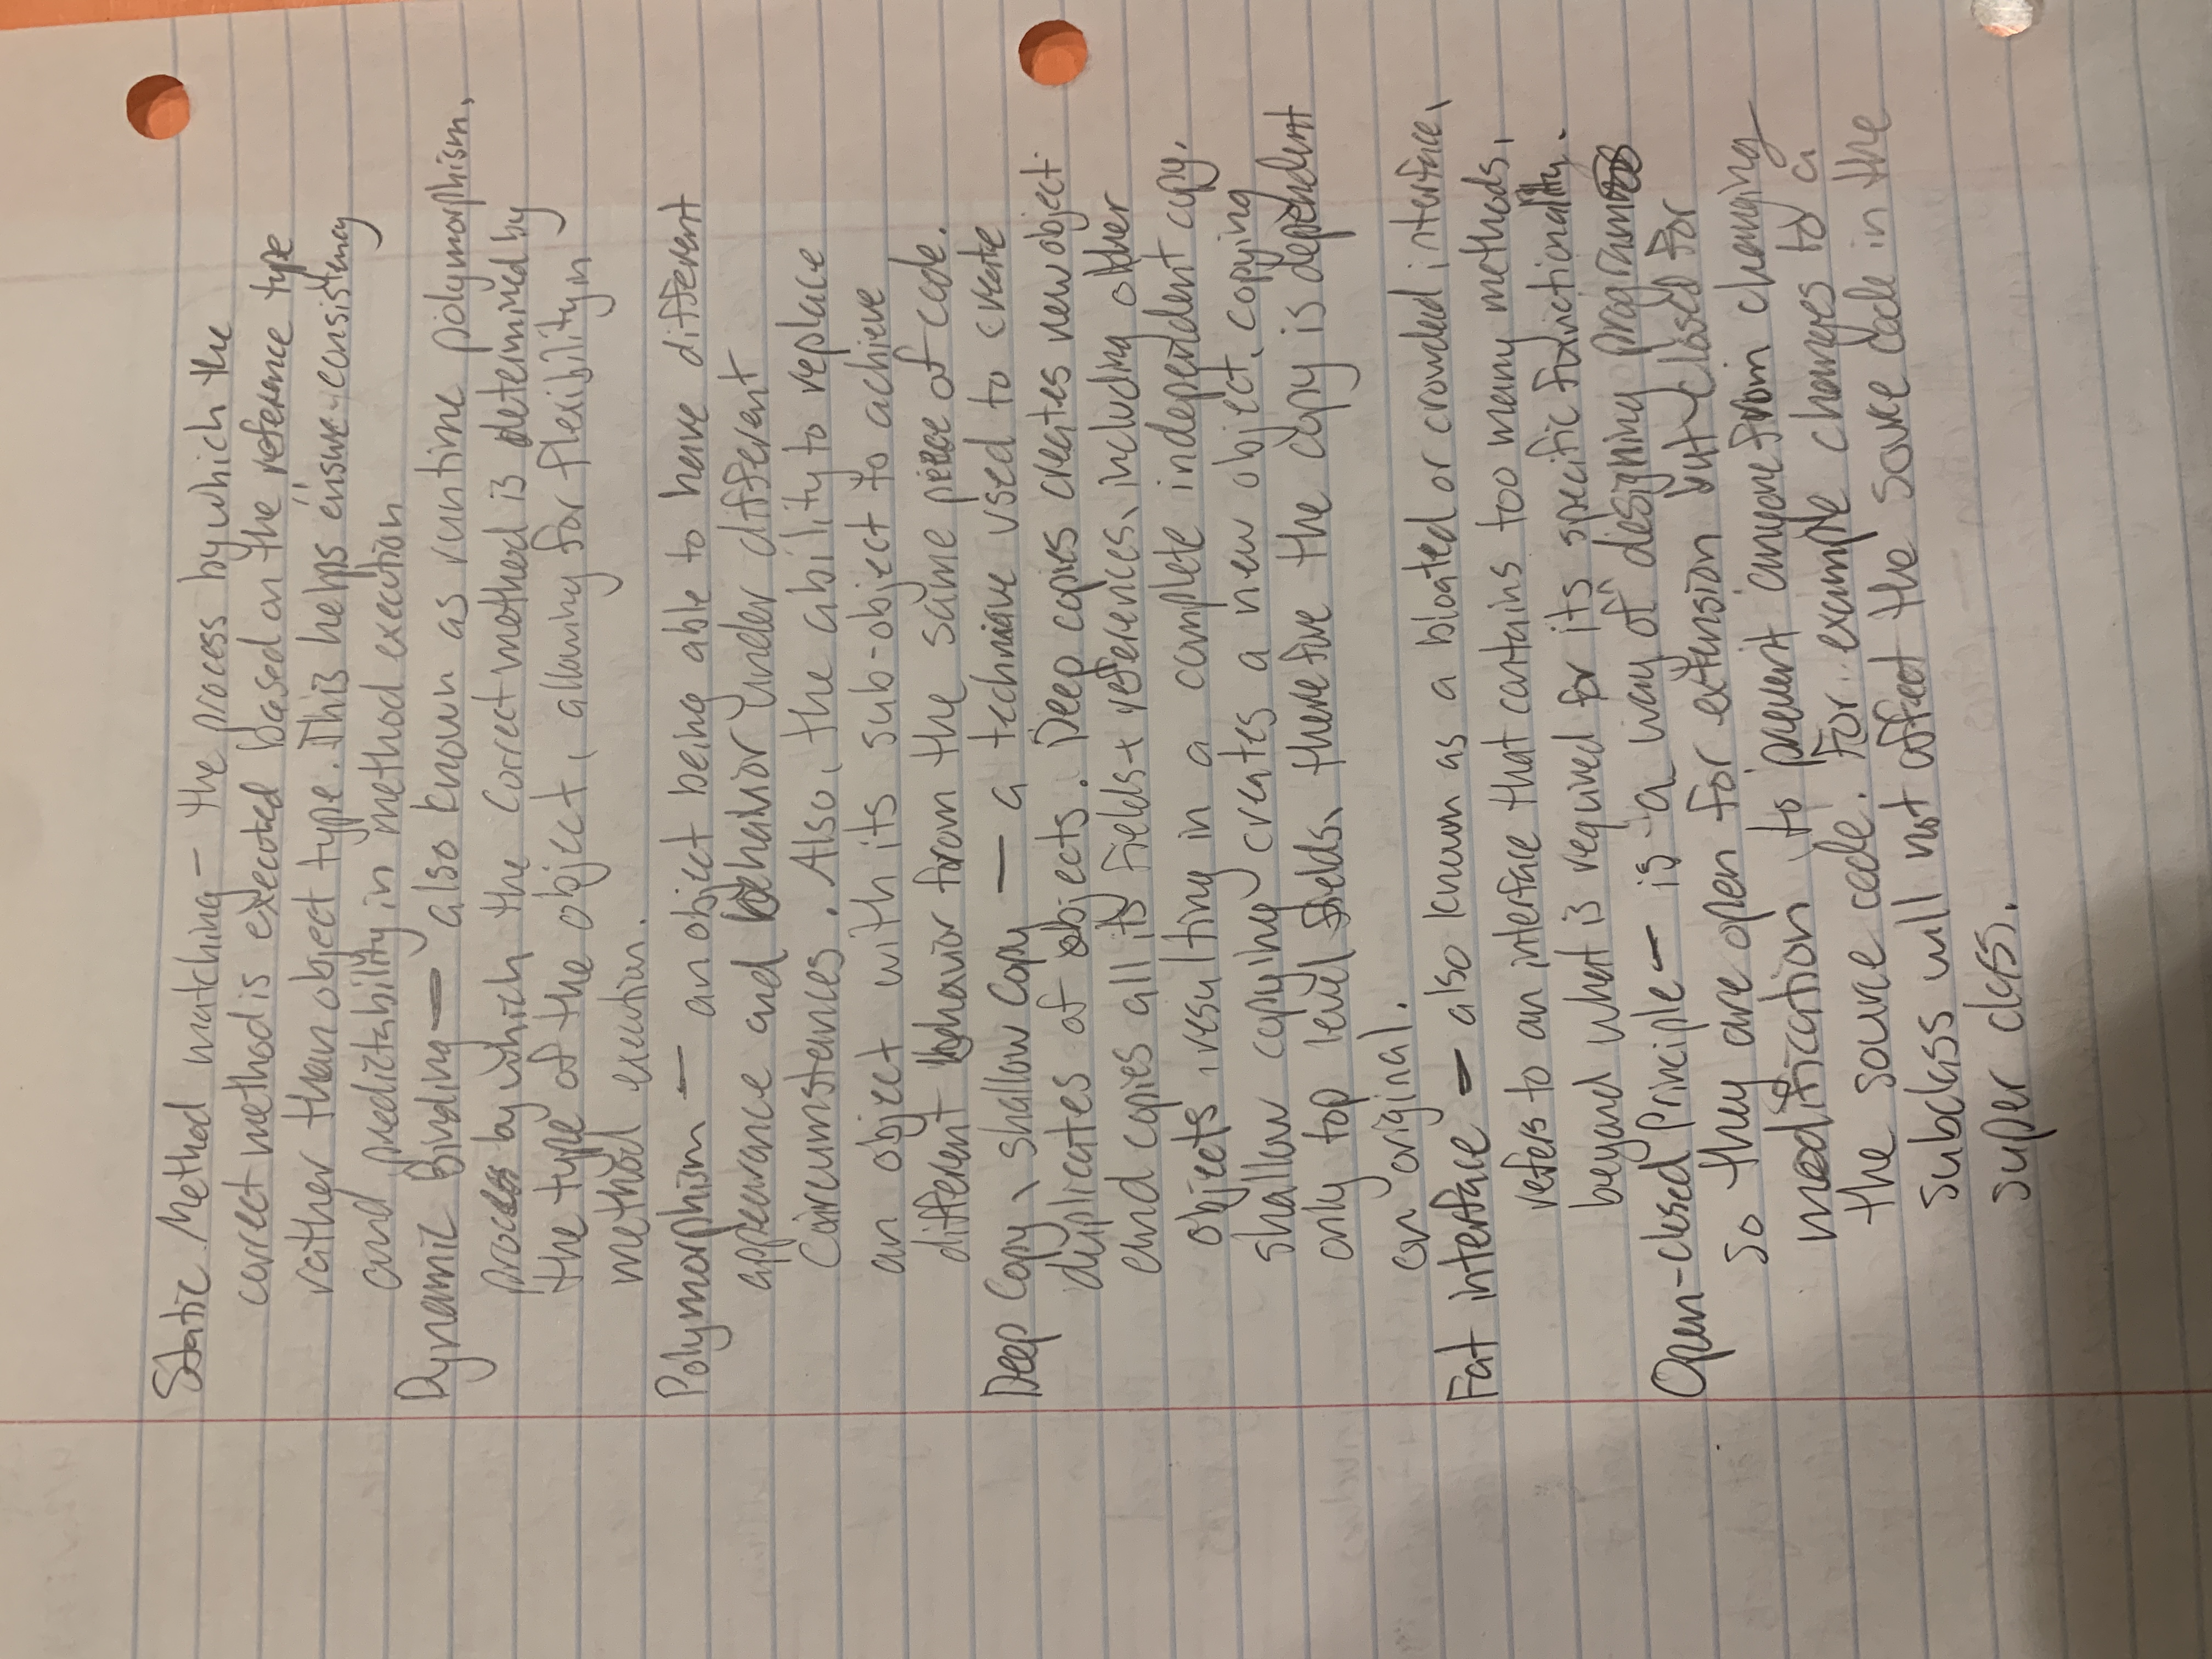 Static Method matching - the process by which the
correct method is executed based on the reference type
rather than object type. This helps ensure consistency
and predictability in method execution
Dynamic Binding - also known as runtime polymorphism,
process by which the correct method is determined by
the type of the object, allowing for flexibility in
method execution.
Polymorphism - an object being able to have different
appearance and behavior under different
circumstances. Also, the ability to replace
an object with its sub-object to achieve
different behavior from the same piece of code.
Deep Copy, shallow Copy - a technique used to create
duplicates of objects. Deep copies creates new object
and copies all its fields + references, including other
objects, resulting in a complete independent copy.
shallow copying creates a new object, copying
only top level fields, therefore the copy is dependent
on original.
Fat interface - also known as a bloated or crowded interface,
refers to an interface that contains too many methods,
beyond what is required for its specific functionality.
Open-closed Principle - is a way of designing program
so they are open for extension but closed for
modification, to prevent anyone from changing
the source code. For example changes to a
subclass will not affect the source code in the
super class.